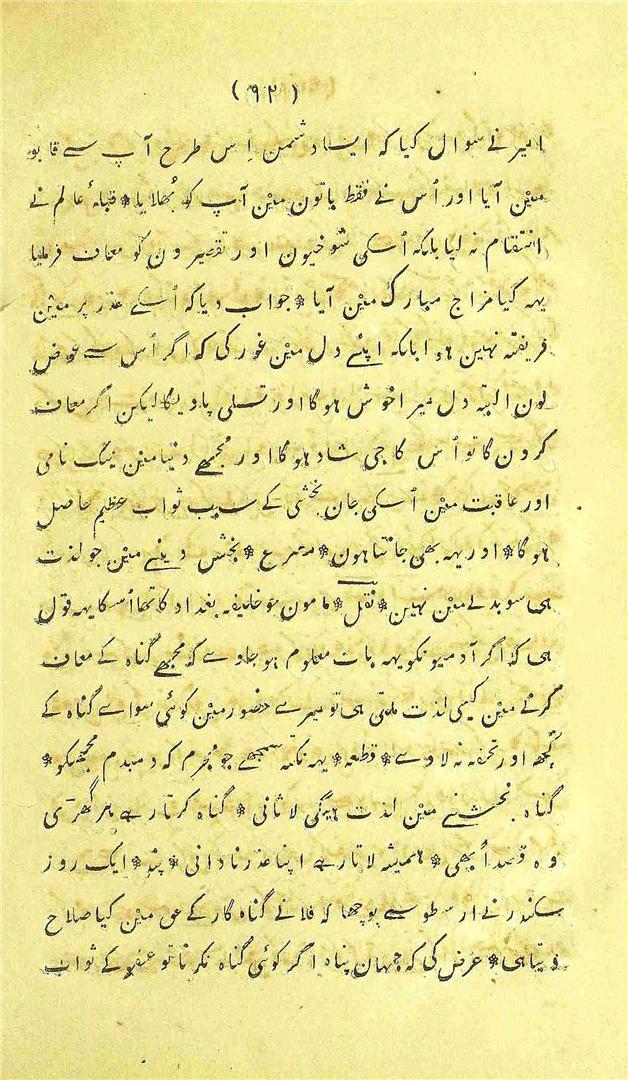 (۹۲)
امیر نے سوال کیا کہ ایسا دشمن اِس طرح آپ سے قابو
میں آیا اور اُس نے فقط باتون میں آپ کو بُھلایا * قبلۂ عالم نے
انتقام نہ لیا بلکہ اُسکی شوخیون اور تقصیرون کو معاف فرمایا
یہہ کیا مزاج مبارک میں آیا * جواب دیا کہ اُسکے عذر پر میں
فریفتہ نہین ہوا بلکہ اپنے دل میں غور کی کہ اگر اُس سے عوض
لون البتہ دل میرا خوش ہوگا اور تسلی پاویگا لیکن اگر معاف
کرون گا تو اُس کا جی شاد ہوگا اور مجھے دنیا میں نیک نامی
اور عاقبت میں اُسکی جان بخشی کے سبب ثواب عظیم حاصل
ہوگا * اور یہہ بھی جانتا ہون * مصرع * بخش دینے میں جو لذت
ہی سو بدلے میں نہین * نقل * مامون جو خلیفہ بغداد کا تھا اُسکا یہہ قول
ہی کہ اگر آدمیونکو یہہ بات معلوم ہو جاوے کہ مجھے گناہ کے معاف
کرنے میں کیسی لذت ملتی ہی تو میرے حضور میں کوئی سواے گناہ کے
کچھ اور تحفہ نہ لاوے * قطعہ * یہہ نکتہ سمجھے جو مجرم کہ دمبدم مجھکو *
گناہ بخشنے میں لذت ہیگی لاثانی * گناہ کرتا رہے ہر گھڑی
وہ قصداً بھی * ہمیشہ لاتا رہے اپنا عذر نادانی * پند * ایک روز
سکندر نے ارسطو سے پوچھا کہ فلانے گناہ گار کے حق میں کیا صلاح
دیتا ہی * عرض کی کہ جہان پناہ اگر کوئی گناہ نکرتا تو عفو کے ثواب